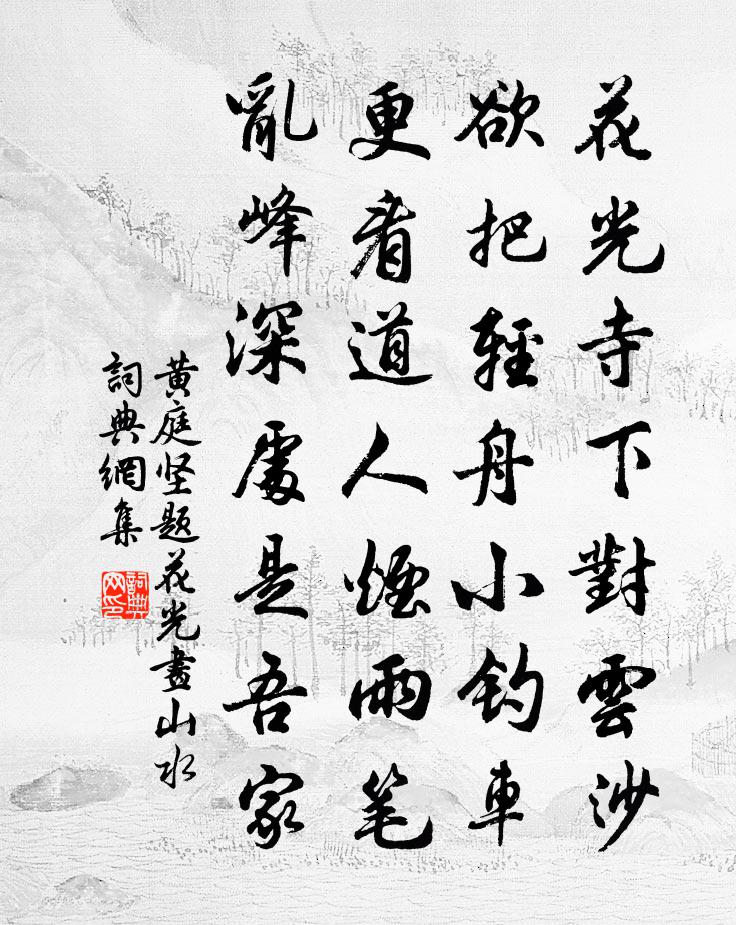 花光寺下對雲沙
欲把輕舟小釣車
更看道人煙雨笔
亂峰深處是吾家
黄庭坚题花光畫山水
詞典網集
詞典网印